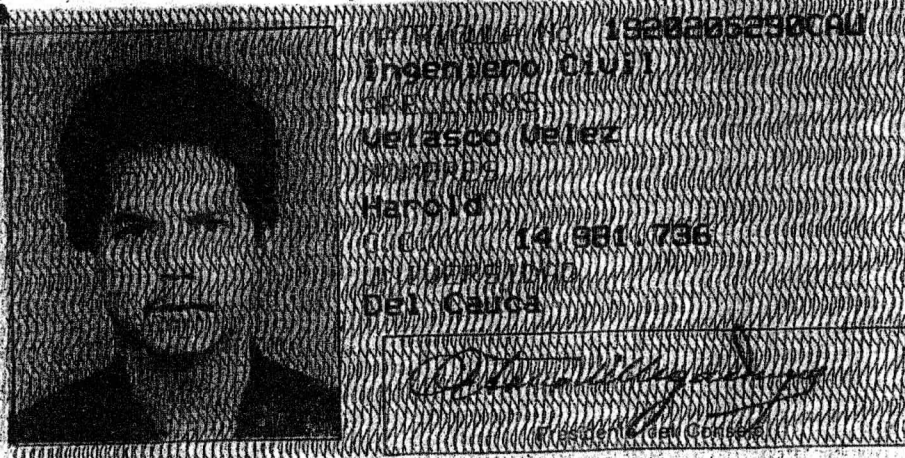 MATRICULA No. 1920205290CAU
Ingeniero Civil
APELLIDOS
Velasco Velez
NOMBRES
Harold
C.C. 14.981.736
UNIVERSIDAD
Del Cauca
Presidente del Consejo